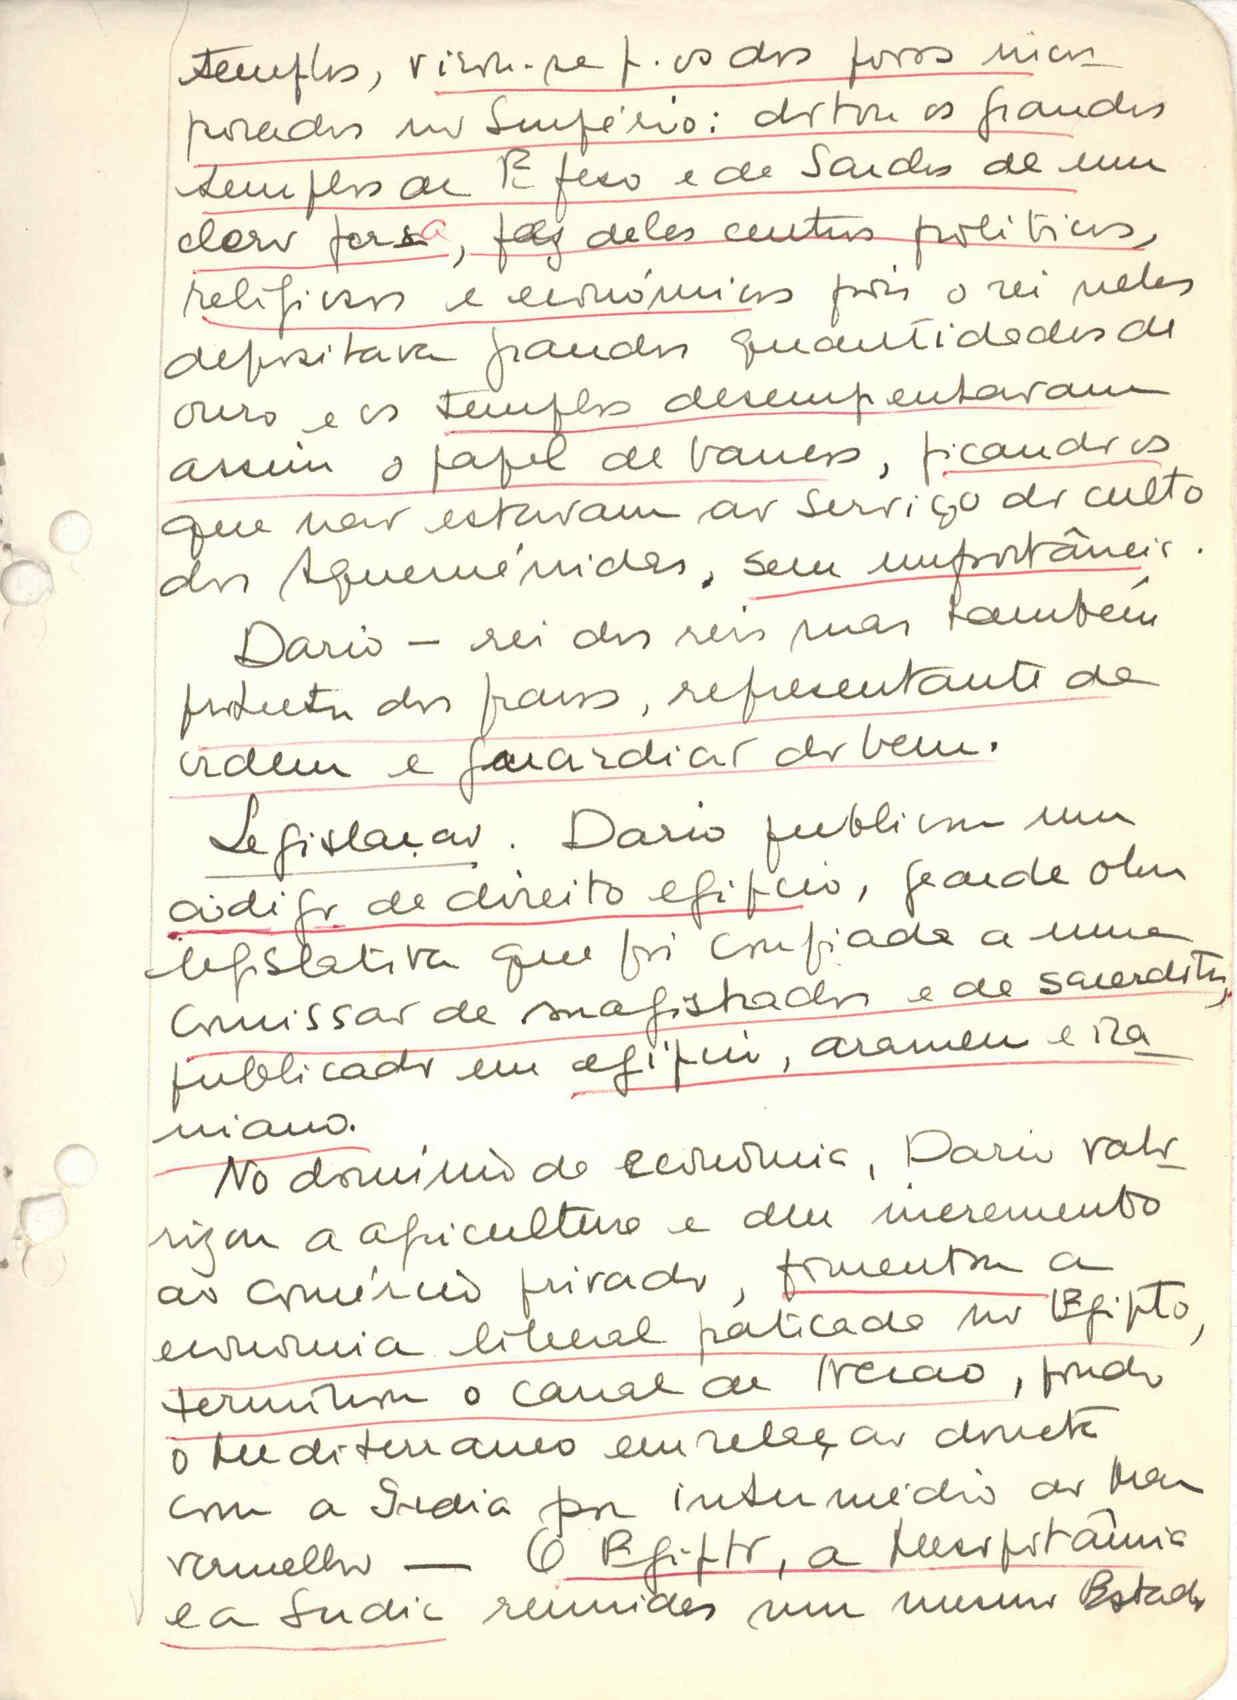 templos, virou-se p. os dos povos incor-
porados no Império: dotou os grandes
templos de Efeso e de Sardes de um
clero persa, fez deles centros políticos,
religiosos e económicos pois o rei neles
depositava grandes quantidades de
ouro e os templos desempenhavam
assim o papel de bancos, ficando os
que não estavam ao serviço do culto
dos Aqueménidas, sem importância.
Dario – rei dos reis mas também
protector dos fracos, representante da
ordem e guardião do bem.
Legislação. Dario publicou um
código de direito egípcio, grande obra
legislativa que foi confiada a uma
comissão de magistrados e de sacerdotes,
publicado em egípcio, arameu e ira-
niano.
No domínio da economia, Dario valo-
rizou a agricultura e deu incremento
ao comércio privado, fomentou a
economia liberal praticada no Egipto,
terminou o canal de Necao, pondo
o Mediterraneo em relação directa
com a India por intermédio do Mar
Vermelho — O Egipto, a Mesopotâmia
e a India reunidas num mesmo Estado